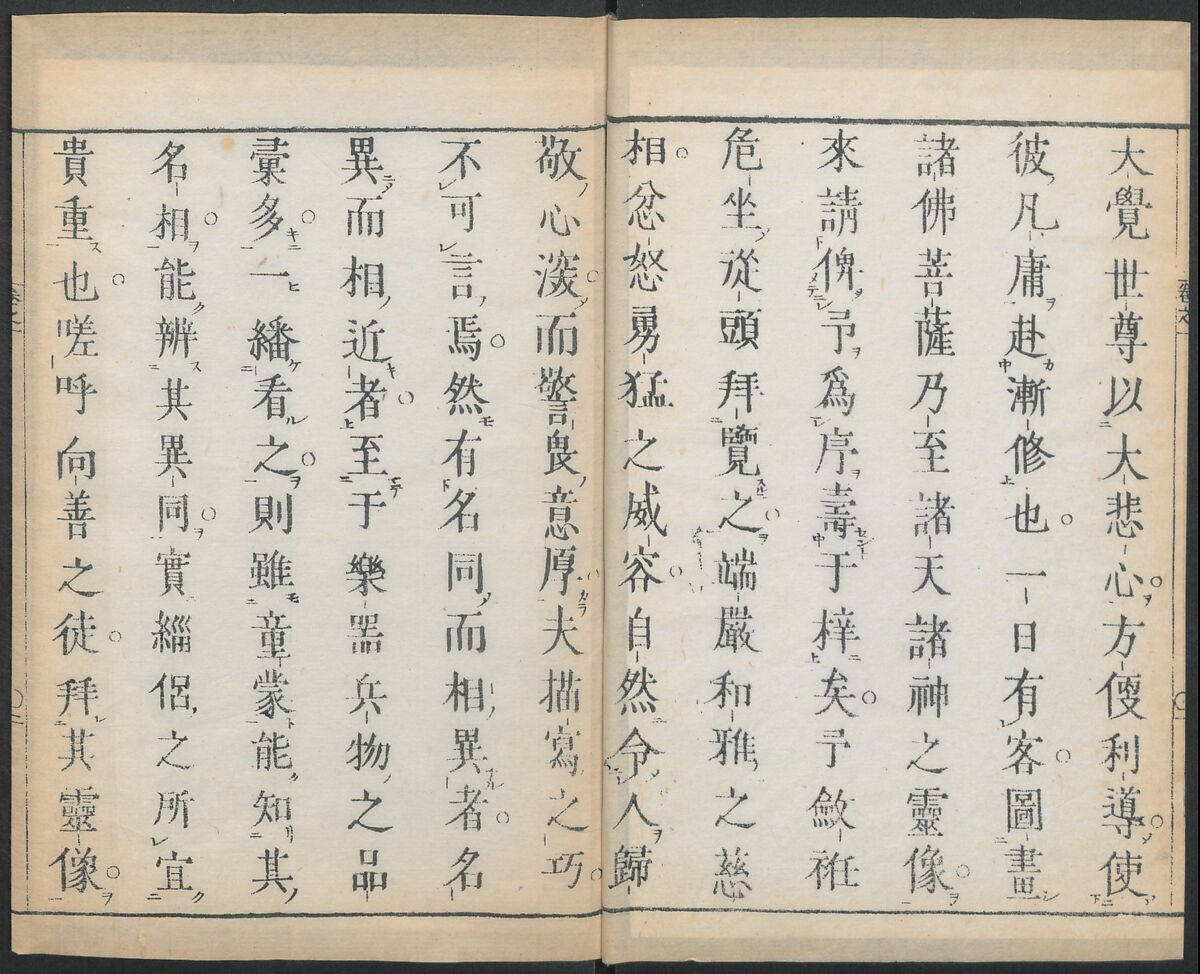 大覺世尊以大悲心方便利導使
彼凡庸赴漸修也一日有客圖畫
諸佛菩薩乃至諸天諸神之靈像
來請俾予爲序壽于梓矣予斂袵
危坐從頭拜覽之端嚴和雅之慈
相忿怒勇猛之威容自然令人歸
敬心深而警畏意厚夫描寫之巧
不可言焉然有名同而相異者名
異而相近者至于樂器兵物之品
彙多一繙看之則雖童蒙能知其
名相能辨其異同實緇侶之所宜
貴重也嗟呼向善之徒拜其靈像